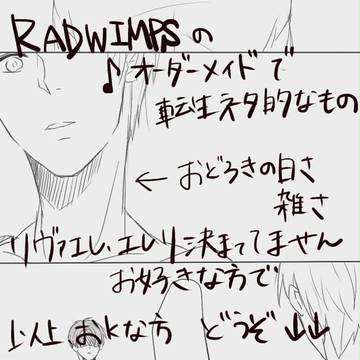 RADWIMPSの
♪オーダーメイドで
転生ネタ的なもの
←おどろきの白さ
雑さ
リヴァエレ、エレリ決まってません
お好きな方で
以上おkな方 どうぞ↓↓